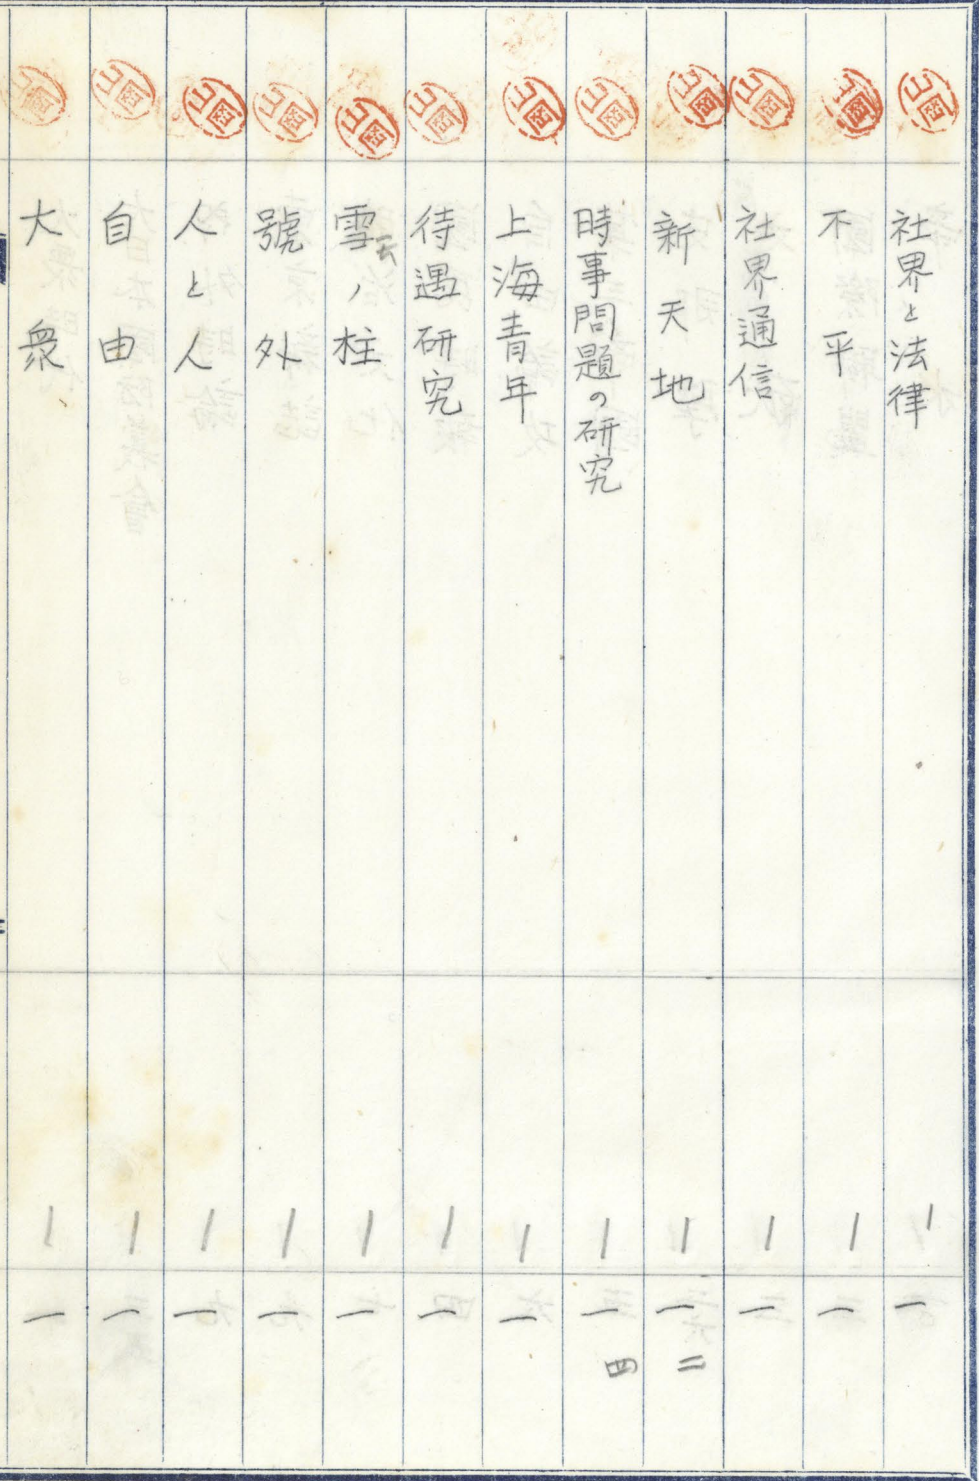 山岡 社界と法律 1 一
山岡 不平 1 一
山岡 社界通信 1 一
山岡 新天地 1 一二
山岡 時事問題の研究 1 一四
山岡 上海青年 1 一
山岡 待遇研究 1 一
山岡 雪ノ柱 1 一
山岡 號外 1 一
山岡 人と人 1 一
山岡 自由 1 一
山岡 大衆 1 一